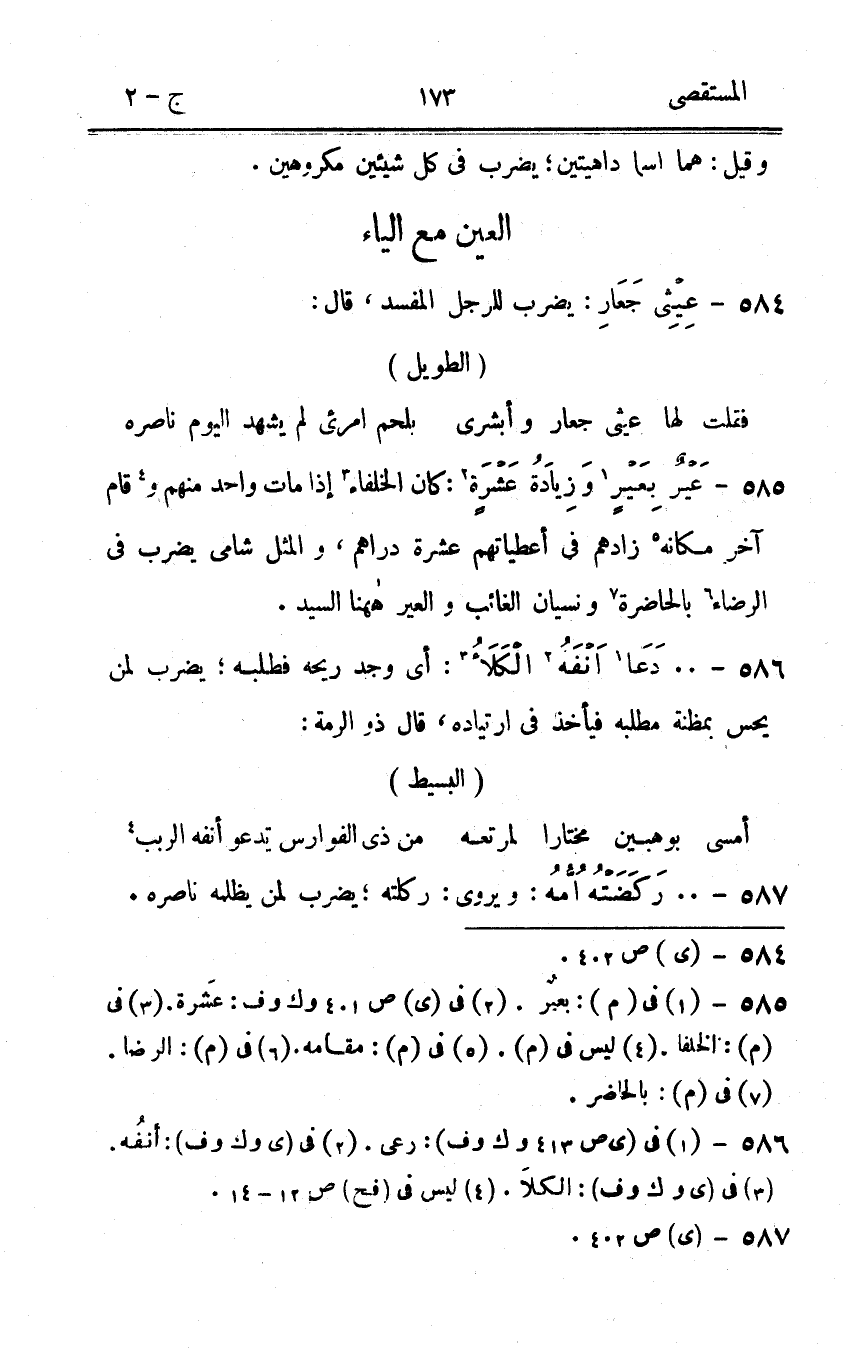 المستقصى ١٧٣ ج - ٢
و قيل: هما اسما داهيتين؛ يضرب فى كل شيئين مكروهين .
العين مع الياء
٥٨٤ - عِيْثِى جَعَارِ : يضرب للرجل المفسد، قال:
( الطويل )
فقلت لها عيثى جعار و أبشرى بلحم امرئى لم يشهد اليوم ناصره
٥٨٥ - عَيْرٌ بِعَيْرٍ١ وَ زِيادَةُ عَشْرَةٍ٢ :كان الخلفاء٣ إذا مات واحد منهم و٤ قام
آخر مكانه٥ زادهم فى أعطياتهم عشرة دراهم، و المثل شامى يضرب فى
الرضاء٦ بالحاضرة٧ و نسيان الغائب و العير ههنا السيد .
٥٨٦ - .. دَعَا١ اَنْفَهُ٢ الْكَلَاءُ٣ : أى وجد ريحه فطلبه؛ يضرب لمن
يحس بمظنة مطلبه فيأخذ فى ارتياده، قال ذو الرمة:
( البسيط )
أمسى بوهبين مختارا لمرتعه من ذى الفوارس تدعو أنفه الربب٤
٥٨٧ - .. رَكَضَتْهُ اُمُّهُ : و يروى: ركلته ؛يضرب لمن يظلمه ناصره .
٥٨٤ - (ى) ص ٤٠٢ .
٥٨٥ - (١) فى( م ): بعيرٌ . (٢) فى (ى) ص ٤٠١ و ك و ف: عَشرة.(٣) فى
(م): الخلفا .(٤) ليس فى (م) . (٥) فى (م) : مقامه.(٦) فى (م) : الرضا .
(٧) فى (م) : بالحاضر .
٥٨٦ - (١) فى (ى ص ٤١٣ و ك و ف): رعى . (٢) فى (ى و ك و ف): أنفُه.
(٣) فى (ى و ك و ف) : الكلاَ . (٤) ليس فى (فج) ص ١٢ - ١٤ .
٥٨٧ - (ى) ص ٤٠٢ .